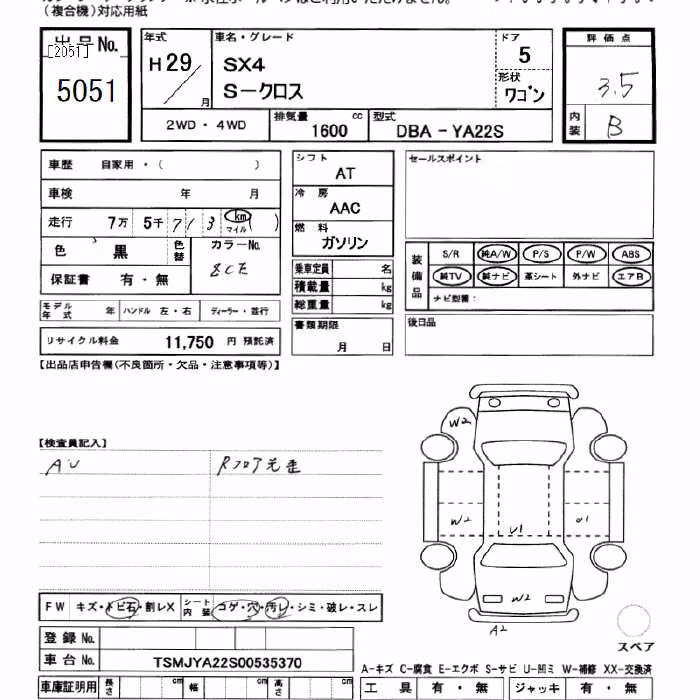 (複合機)対応用紙
出品No.
[2051]
5051
年式
H29
月
車名・グレード
SX4
S-クロス
ドア
5
形状
ワゴン
評価点
3.5
内装
B
2WD・4WD
排気量
1600 cc
型式
DBA-YA22S
車歴 自家用・( )
車検 年 月
走行 7万 5千 713 km マイル ( )
色 黒
色替
カラーNo.
ZCE
保証書 有・無
モデル年式 年 ハンドル 左・右 ディーラー・並行
リサイクル料金 11,750 円 預託済
シフト
AT
冷房
AAC
燃料
ガソリン
乗車定員 名
積載量 kg
総重量 kg
書類期限
月 日
セールスポイント
装備品
S/R 純A/W P/S P/W ABS
純TV 純ナビ 革シート 外ナビ エアB
ナビ型番:
後日品
【出品店申告欄(不良箇所・欠品・注意事項等)】
【検査員記入】
AU
Rフロア先歪
W2
W2
U1
W2
A2
スペア
FW キズ・トビ石・割レX シート内装 コゲ・穴・汚レ・シミ・破レ・スレ
登録No.
車台No. TSMJYA22S00535370
A-キズ C-腐食 E-エクボ S-サビ U-凹ミ W-補修 XX-交換済
車庫証明用 長さ cm 幅 cm 高さ cm
工具 有・無 ジャッキ 有・無